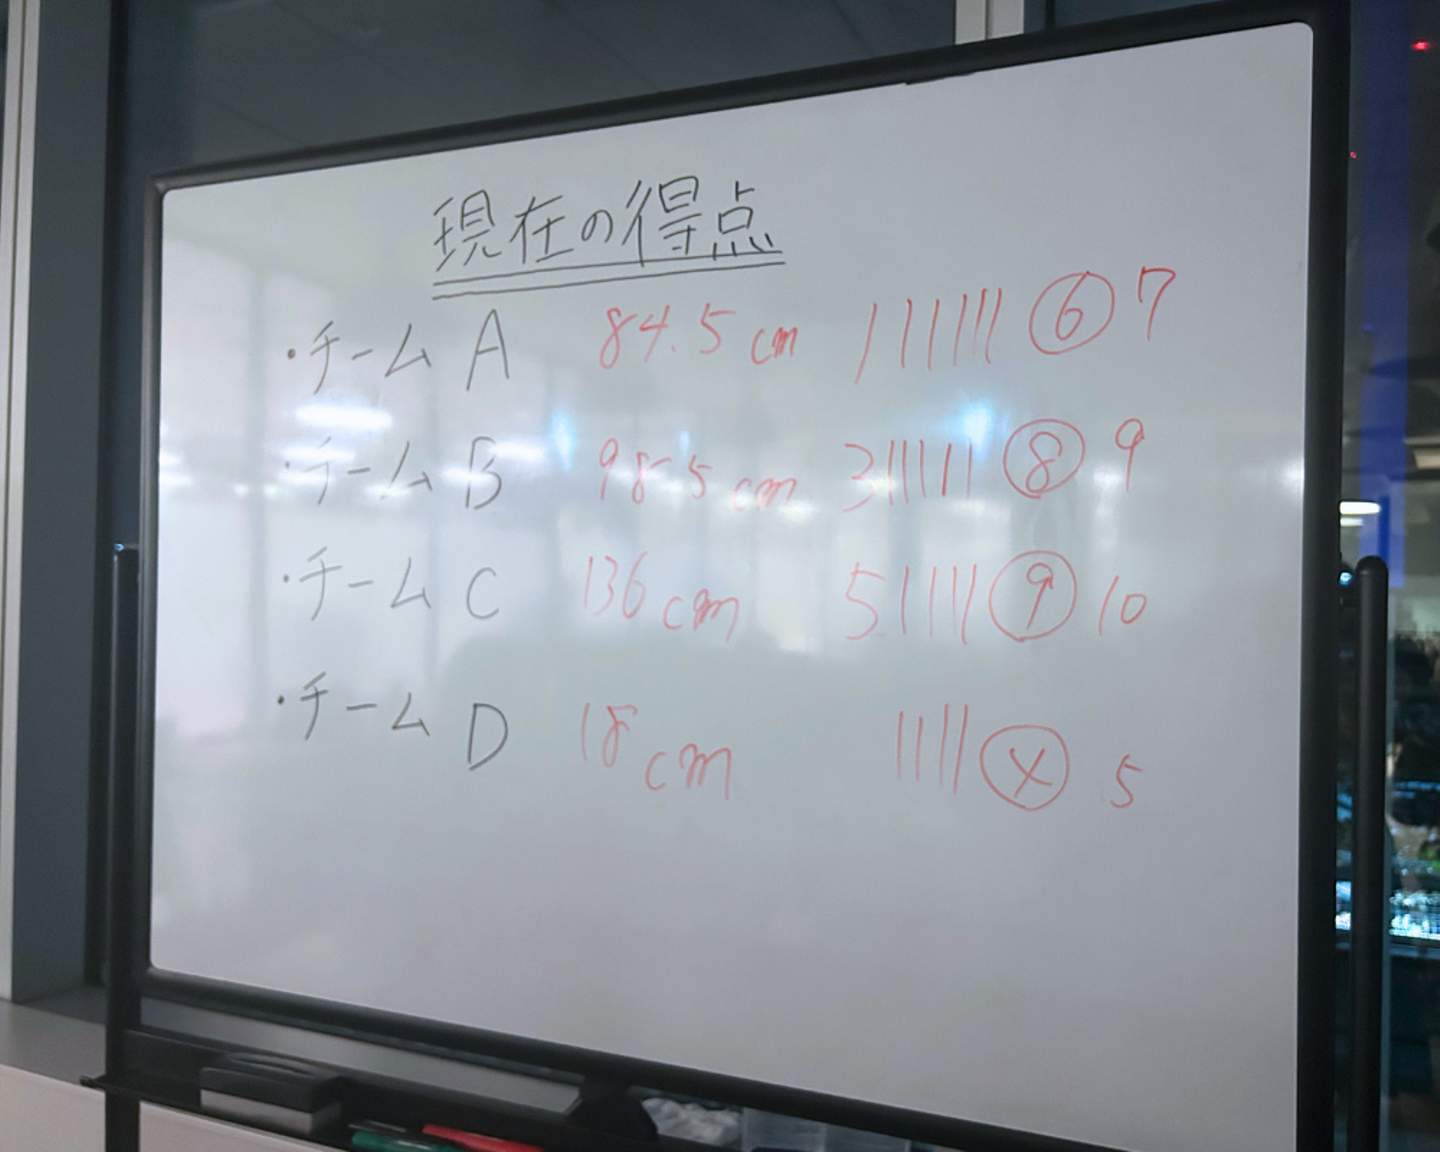 現在の得点
・チーム A 84.5 cm ||||||| ⑥ 7
・チーム B 98.5 cm 3|||||| ⑧ 9
・チーム C 136 cm 5||||| ⑨ 10
・チーム D 18 cm ||||| ⓧ 5